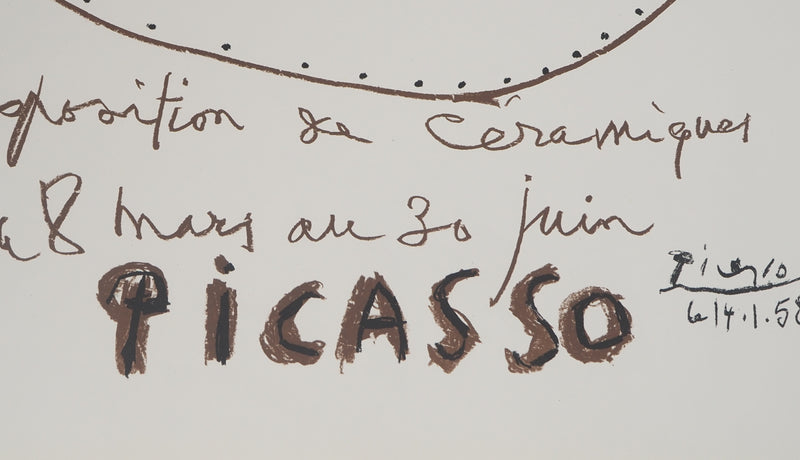 position de céramiques
8 mars au 30 juin
PiCASSO
Picasso
14.1.58